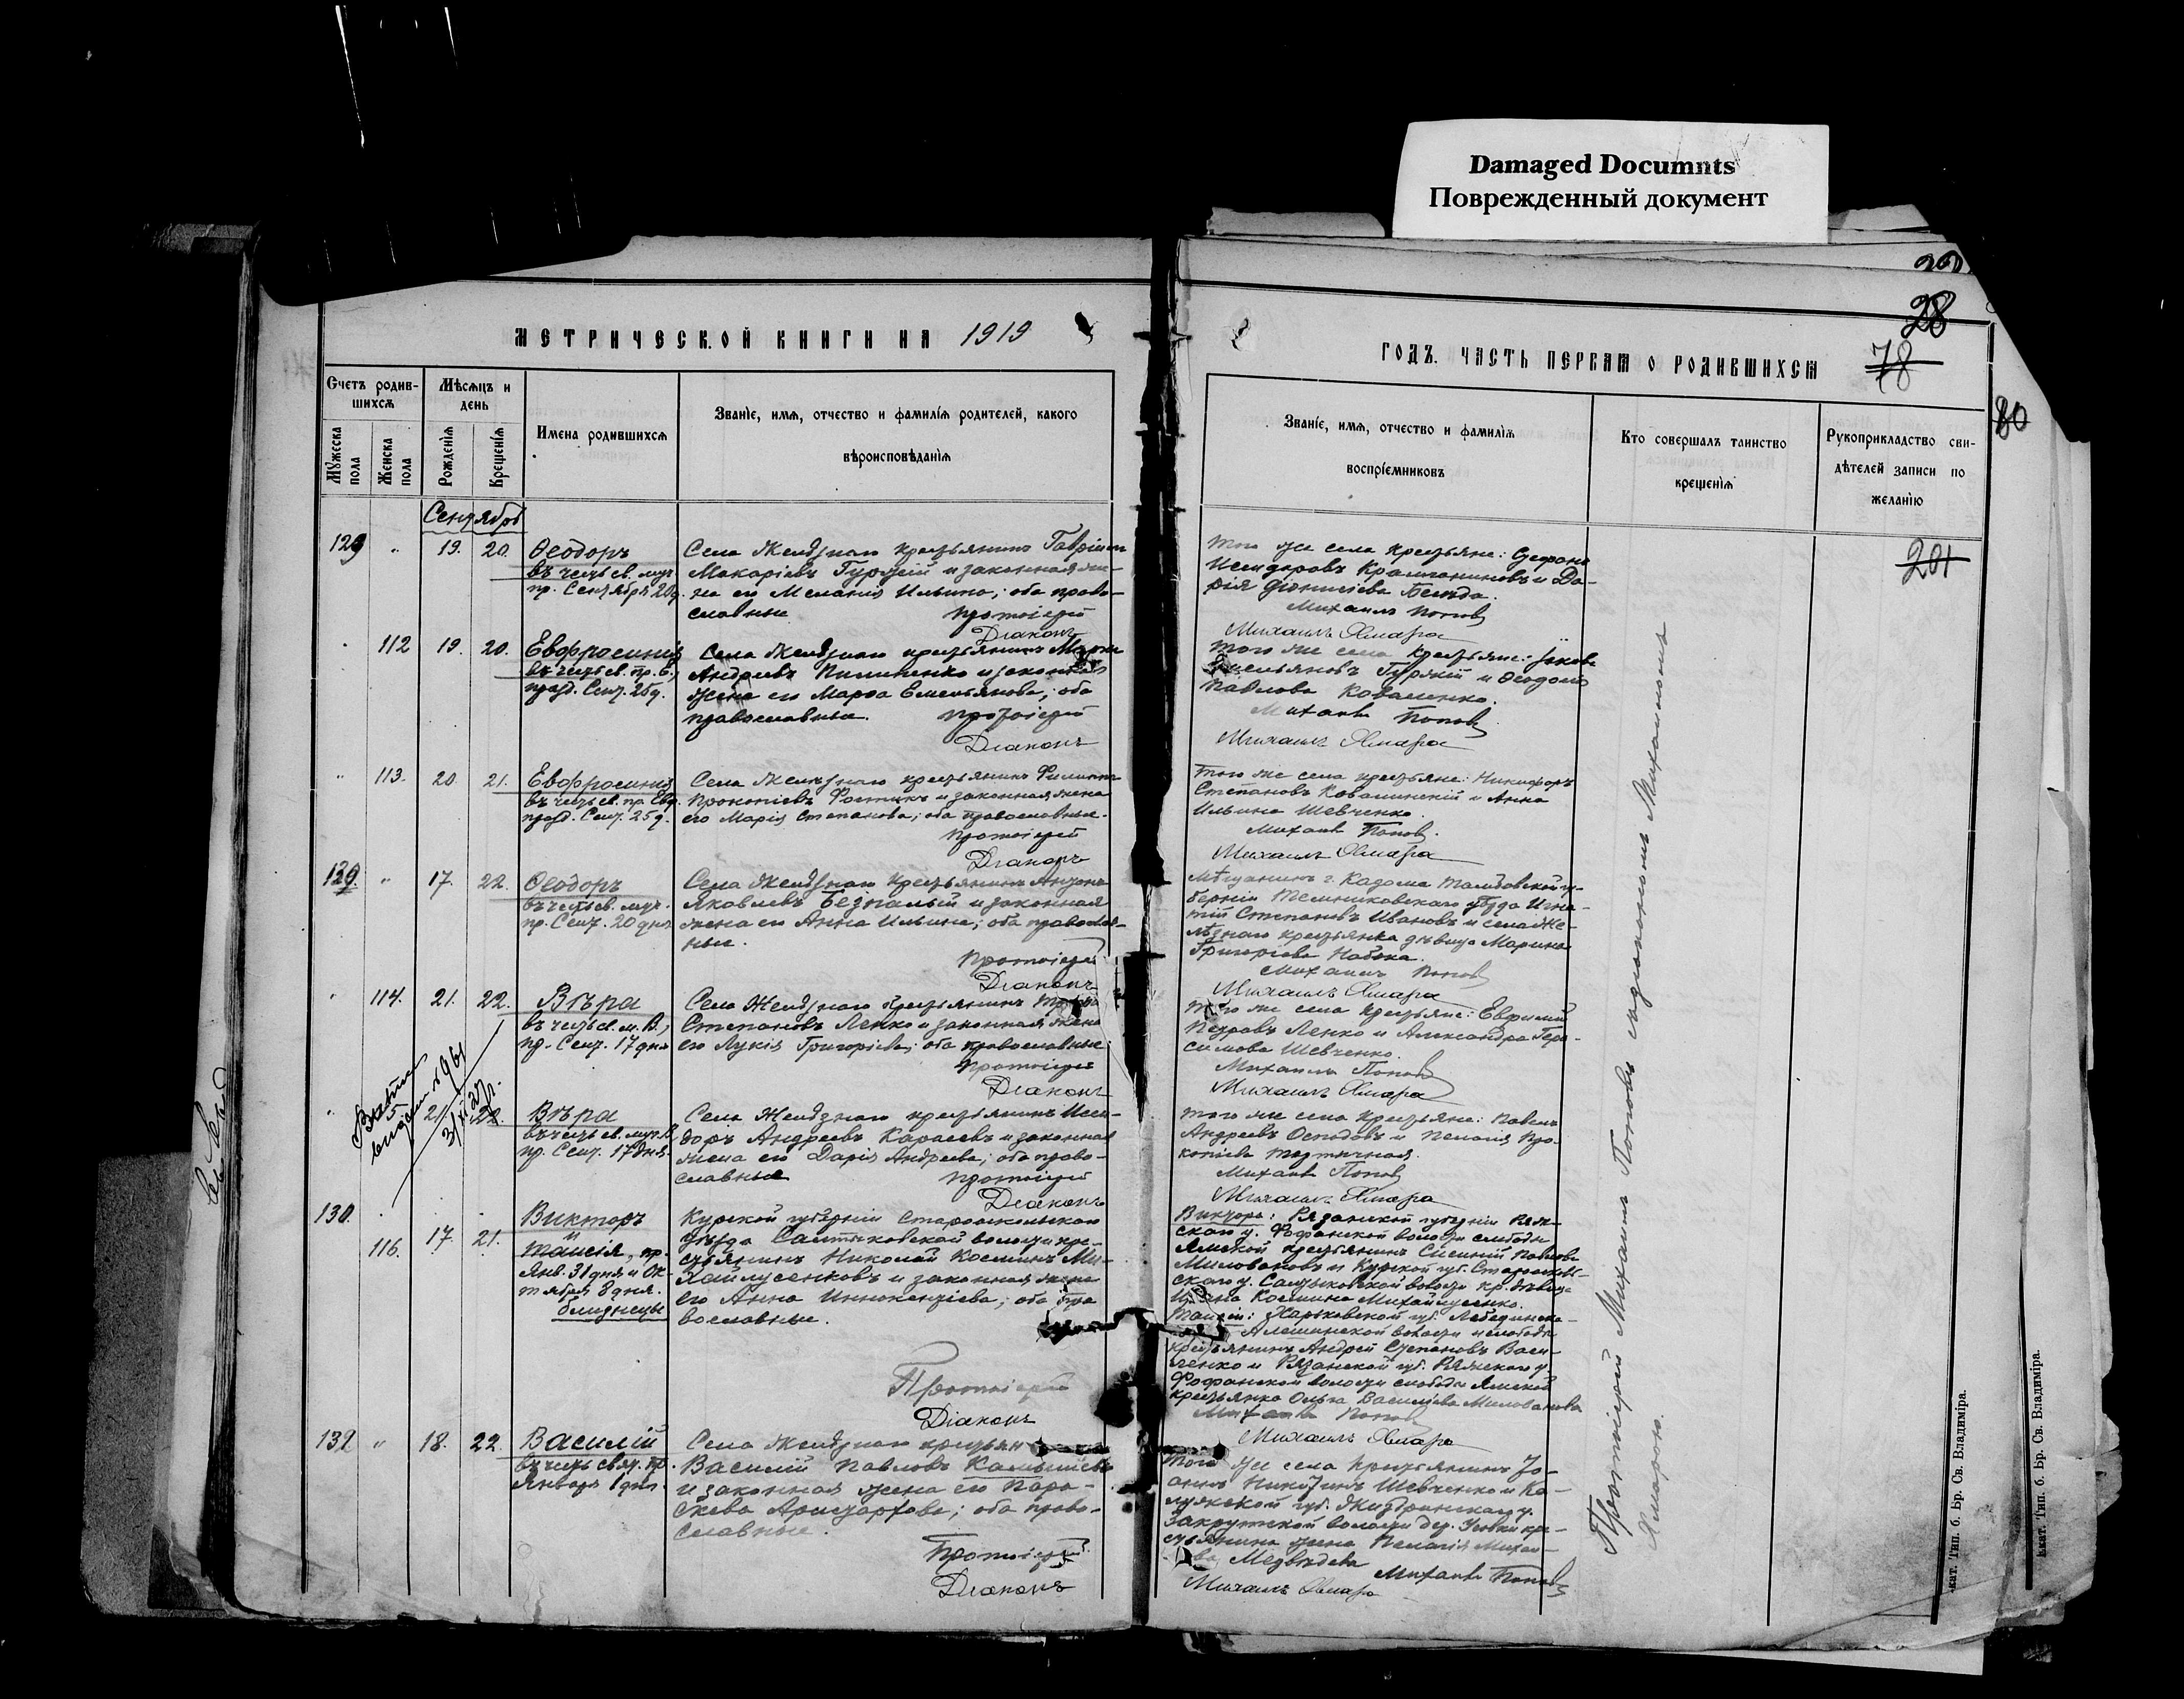 Damaged Documnts
Поврежденный документ
28
78
80
МЕТРИЧЕСКОЙ КНИГИ НА 1919
ГОДЪ. ЧАСТЬ ПЕРВАЯ О РОДИВШИХСЯ
Счетъ родив-
шихся
Мѣсяцъ и
день
Мужеска
пола
Женска
пола
Рожденія
Крещенія
Имена родившихся
Званіе, имя, отчество и фамилія родителей, какого
вѣроисповѣданія
Званіе, имя, отчество и фамилія
воспріемниковъ
Кто совершалъ таинство
крещенія
Рукоприкладство сви-
дѣтелей записи по
желанію
201
Сентябрь
129 " 19. 20. Ѳеодоръ
въ честь св. муч.
пр. Сентября 20 д.
Села Желѣзнаго крестьянинъ Гавріилъ
Макаріевъ Гурскій и законная же-
на его Меланія Ильина; оба право-
славные. Протоіерей
Діаконъ
Того же села крестьяне: Стефанъ
Исидоровъ и Да-
рія Діонисіева
Михаилъ Попов
Михаилъ Хмара
112 19. 20. Евфросинія
въ честь св. пр. Е.,
празд. Сент. 25 д.
Села Желѣзнаго крестьянинъ
Андреевъ Пилипенко и законная
жена его Марѳа Емельянова; оба
православные. Протоіерей
Діаконъ
Того же села крестьяне: Іаковъ
Емельяновъ Гурскій и
Павлова Коваленко.
Михаилъ Попов
Михаилъ Хмара
" 113. 20. 21. Евфросинія
въ честь св. пр. Евф.
празд. Сент. 25 д.
Села Желѣзнаго крестьянинъ Филиппъ
Прокопіевъ и законная жена
его Марія Степанова; оба православные.
Протоіерей
Діаконъ
Того же села крестьяне: Никифоръ
Степановъ Ковалинскій и Анна
Ильина Шевченко.
Михаилъ Попов.
Михаилъ Хмара
129. " 17. 22. Ѳеодоръ
въ честь св. муч.
пр. Сент. 20 дня
Села Желѣзнаго крестьянинъ Антонъ
Яковлевъ Безпалый и законная
жена его Анна Ильина; оба православ-
ные.
Протоіерей
Діаконъ
Мѣщанинъ г. Кадома Тамбовской гу-
берніи Темниковскаго уѣзда Игна-
тій Степановъ Ивановъ и села Же-
лѣзнаго крестьянка дѣвица Марина
Григоріева Набока.
Михаилъ Попов
Михаилъ Хмара
" 114. 21. 22. Вѣра
въ честь св. м. В.,
пр. Сент. 17 дня
Села Желѣзнаго крестьянинъ
Степановъ Ленко и законная жена
его Лукія Григоріева; оба православные.
Протоіерей
Діаконъ
Того же села крестьяне: Евфимій
Петровъ Ленко и Александра Гера-
симова Шевченко.
Михаилъ Попов
Михаилъ Хмара
" 22. Вѣра
въ честь св. муч. В.
пр. Сент. 17 дня.
Села Желѣзнаго крестьянинъ Иси-
доръ Андреевъ Карасевъ и законная
жена его Дарія Андреева; оба право-
славные Протоіерей
Діаконъ
Того же села крестьяне: Павелъ
Андреевъ Осподовъ и Пелагія Про-
копіева
Михаилъ Попов
Михаилъ Хмара
130.
116. 17. 21. Викторъ
и
Таисія, пр.
Янв. 31 дня и Ок-
тября 8 дня.
близнецы
Курской губерніи Старооскольскаго
уѣзда Салтыковской волости кре-
стьянинъ Николай Косминъ Ми-
хайлусенковъ и законная жена
его Анна Иннокентіева; оба пра
вославные.
Протоіерей
Діаконъ
Виктора: Рязанской губерніи Ряж-
скаго у. Фофановской волости слободы
Ямской крестьянинъ Павловъ
Миловановъ и Курской губ. Старооскол-
скаго у. Салтыковской волости кр. дѣвица
Космина Михайлусенко.
Таисіи: Харьковской губ. Лебединска-
Алешинской волости и слободы
крестьянинъ Андрей Степановъ Васи-
ленко и Рязанской губ. Ряжскаго у.
Фофановской волости слободы Ямской
крестьянка Ольга Василіева Милованова
Михаилъ Попов
Михаилъ Хмара
132 " 18. 22. Василій
въ честь свят. пр.
Января 1 дня.
Села Желѣзнаго крестьян
Василій Павловъ Камышевъ
и законная жена его Пара-
скева Аристархова; оба право-
славные.
Протоіерей
Діаконъ
Того же села крестьянинъ Іо-
аннъ Никитинъ Шевченко и Ка-
лужской губ. Жиздринскаго у.
Закрутской волости дер. кре-
стьянина жена Пелагія Михаи-
ва Медвѣдева Михаилъ Попов
Михаилъ Хмара
Протоіерей Михаилъ Поповъ съ діакономъ Михаиломъ
Хмарою.
Екат. Тип. б. Бр. Св. Владиміра.
Екат. Тип. б. Бр. Св. Владиміра.